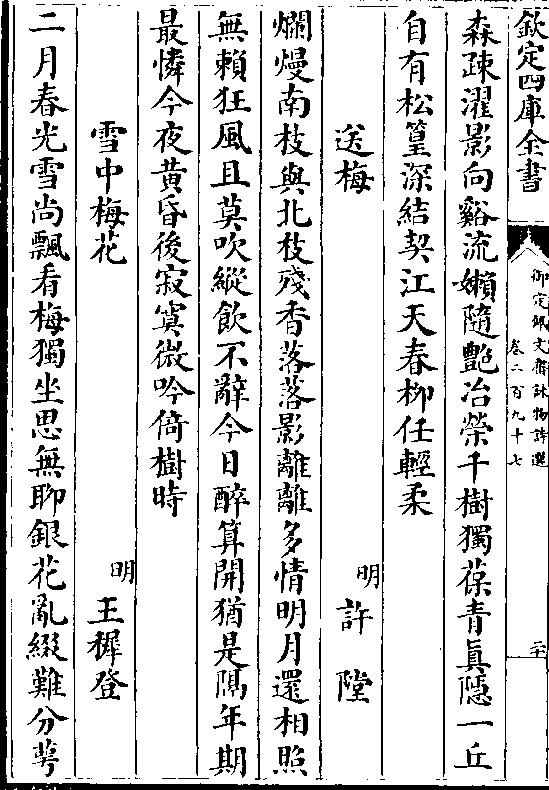 欽定四庫全書
御定佩文齋詠物詩選
卷二百九十七
二十
森疎濯影向谿流嬾隨艷冶榮千樹獨葆青真隱一丘
自有松篁深結契江天春柳任輕柔
送梅
明 許陞
爛熳南枝與北枝殘香落落影離離多情明月還相照
無賴狂風且莫吹縱飲不辭今日醉算開猶是隔年期
最憐今夜黄昏後寂寞微吟倚樹時
雪中梅花
明 王穉登
二月春光雪尚飄看梅獨坐思無聊銀花亂綴難分萼